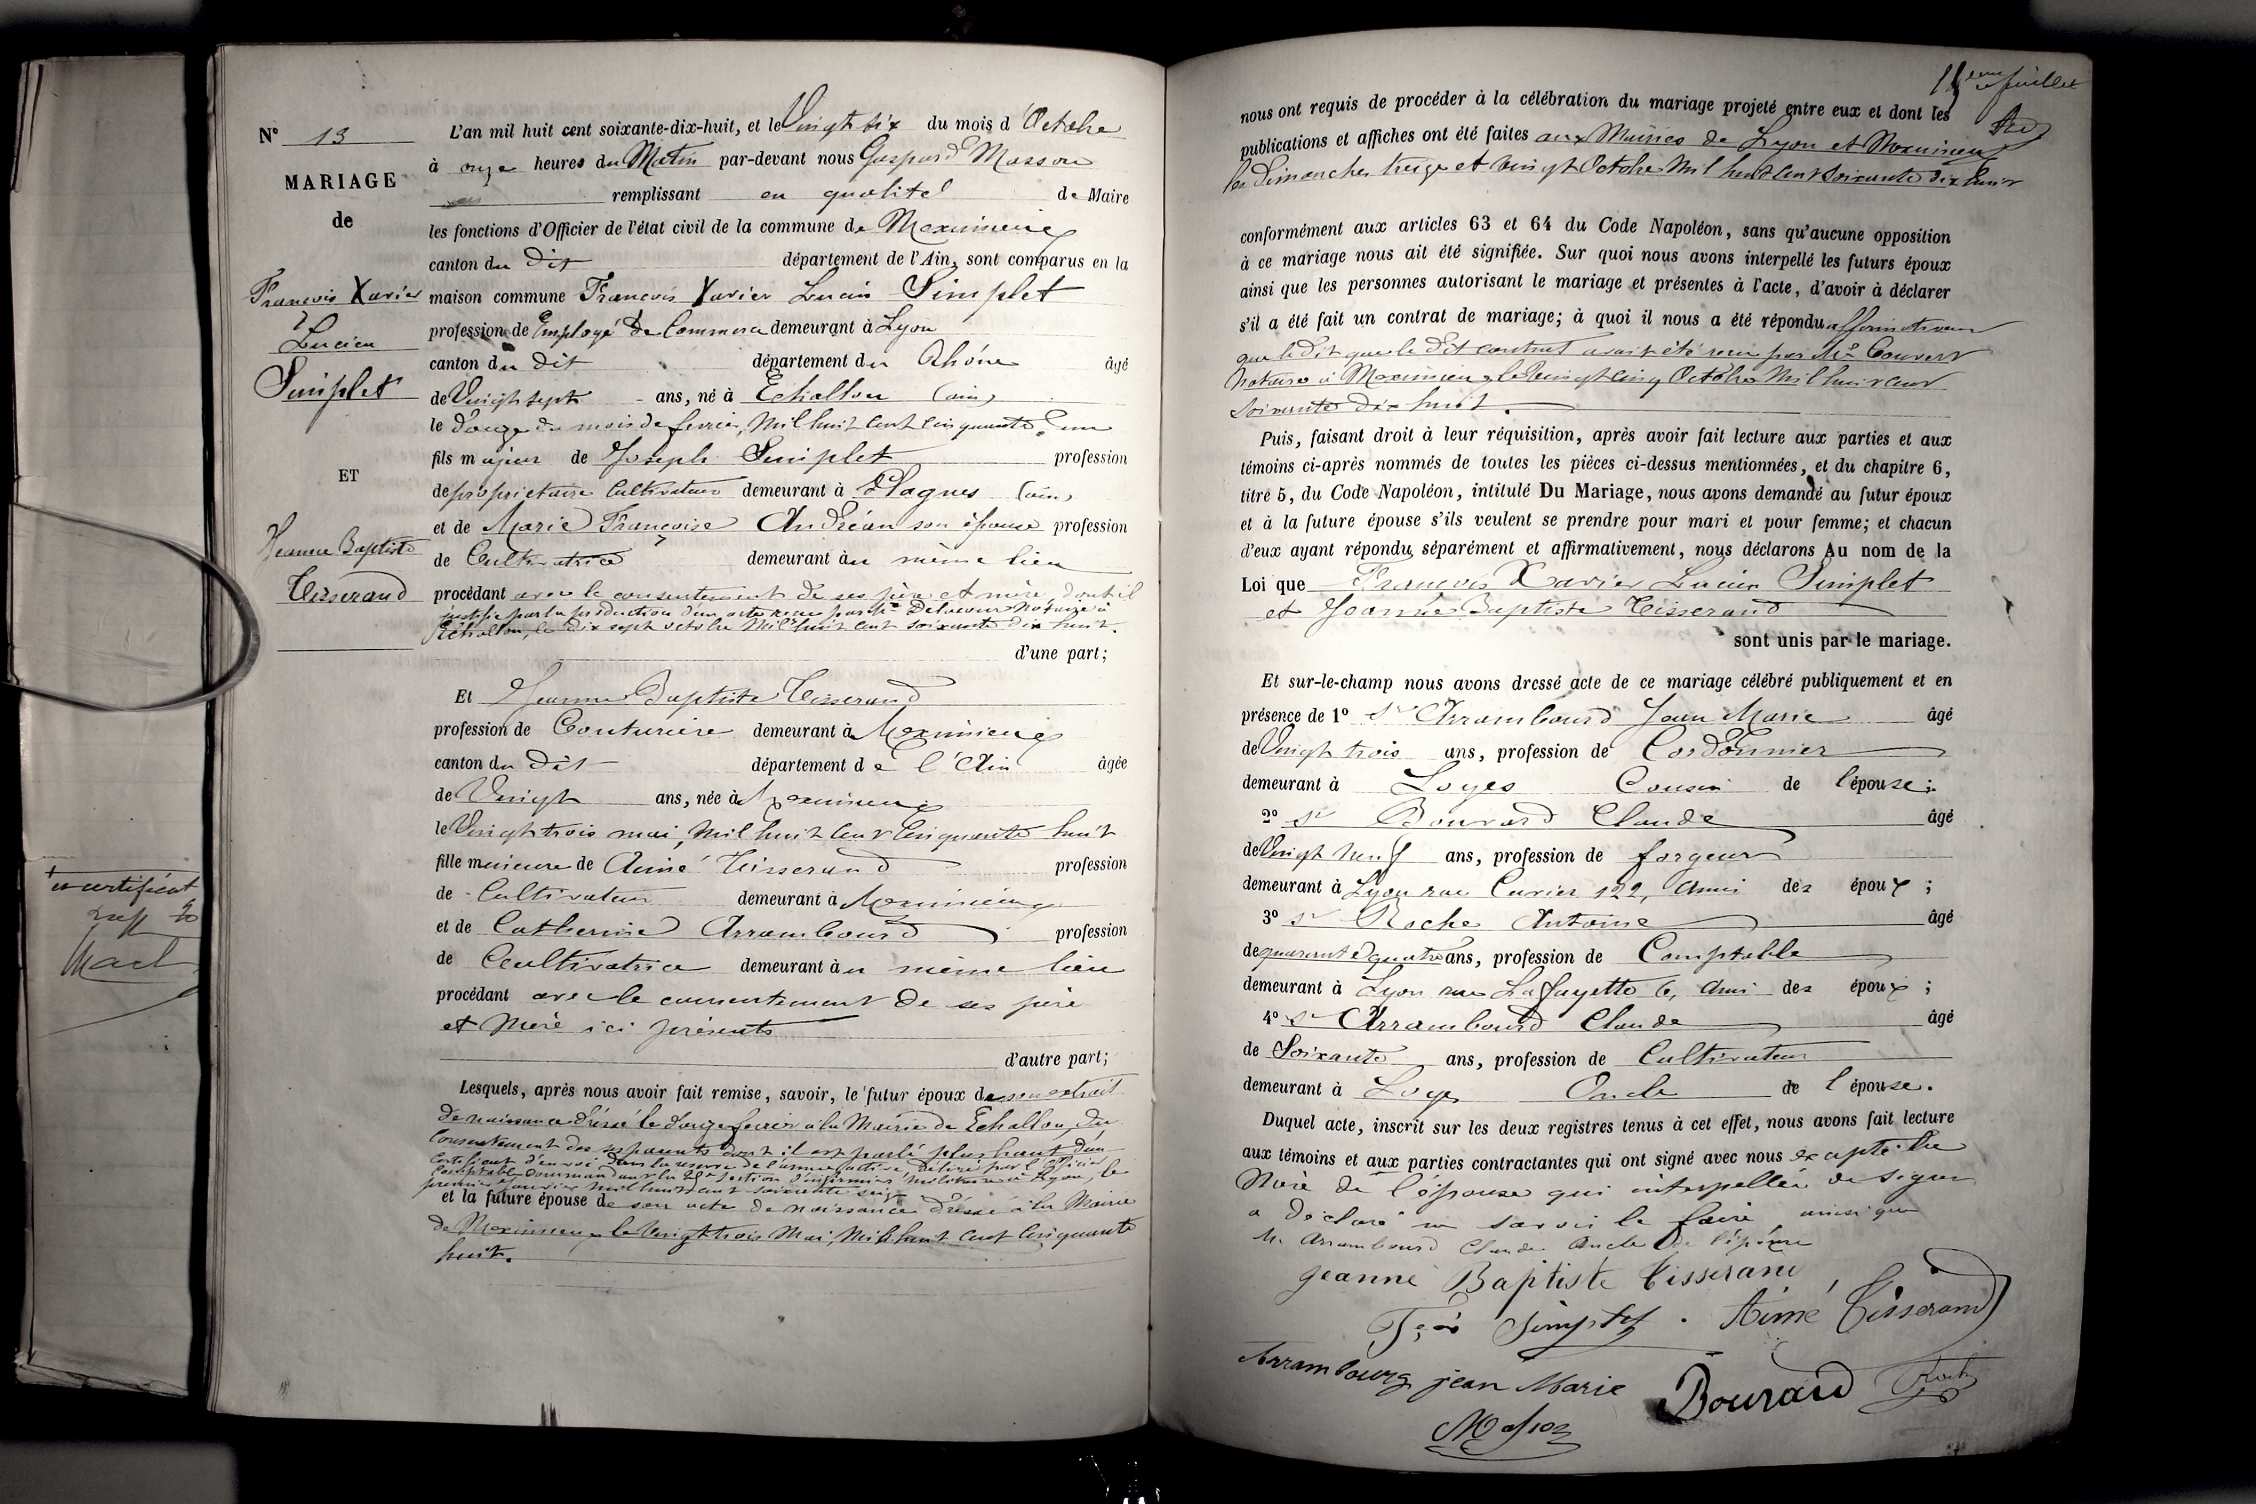 N° 13
MARIAGE
de
François Xavier
Lucien
Simplet
ET
Jeanne Baptiste
Tisserand
L'an mil huit cent soixante-dix-huit, et le Vingt six du mois d'Octobre
à onze heures du Matin par-devant nous Gaspard Masson
remplissant en qualité de Maire
les fonctions d'Officier de l'état civil de la commune de Meximieux
canton du dit département de l'Ain, sont comparus en la
maison commune François Xavier Lucien Simplet
profession de Employé de Commerce demeurant à Lyon
canton du dit département du Rhône âgé
de Vingt sept ans, né à Echallon (ain)
le douze du mois de fevrier, Mil huit cent cinquante un
fils majeur de Joseph Simplet profession
de propriétaire Cultivateur demeurant à Plagnes (ain)
et de Marie Françoise Andréan son épouse profession
de Cultivatrice demeurant au même lieu
procédant avec le consentement de ses père et mère dont il
justifie par la production d'un acte reçu par Me notaire à
Echallon, le dix sept octobre Mil huit cent soixante dix huit.
d'une part;
Et Jeanne Baptiste Tisserand
profession de Couturière demeurant à Meximieux
canton du dit département de l'Ain âgée
de Vingt ans, née à Meximieux
le Vingt trois mai, Mil huit cent cinquante huit
fille mineure de Aimé Tisserand profession
de Cultivateur demeurant à Meximieux
et de Catherine Arrambourd profession
de Cultivatrice demeurant au même lieu
procédant avec le consentement de ses père
et mère ici présents
d'autre part;
Lesquels, après nous avoir fait remise, savoir, le futur époux de son extrait
de naissance dressé le douze fevrier à la Mairie de Echallon, du
consentement des ses parents dont il est parlé plus haut d'un
certificat d'envoi dans la reserve de l'armée active, délivré par l'officier
comptable commandant la section d'infirmiers militaires à Lyon, le
premier janvier mil huit cent soixante seize
et la future épouse de son acte de naissance dressé à la Mairie
de Meximieux le Vingt trois Mai, Mil huit cent cinquante
huit.
nous ont requis de procéder à la célébration du mariage projeté entre eux et dont les
publications et affiches ont été faites aux Mairies de Lyon et Meximieux
les Dimanches treize et vingt Octobre Mil huit cent soixante dix huit
conformément aux articles 63 et 64 du Code Napoléon, sans qu'aucune opposition
à ce mariage nous ait été signifiée. Sur quoi nous avons interpellé les futurs époux
ainsi que les personnes autorisant le mariage et présentes à l'acte, d'avoir à déclarer
s'il a été fait un contrat de mariage; à quoi il nous a été répondu affirmativement
que le dit contrat avait été reçu par Me Couvert
notaire à Meximieux le vingt cinq Octobre Mil huit cent
soixante dix huit.
Puis, faisant droit à leur réquisition, après avoir fait lecture aux parties et aux
témoins ci-après nommés de toutes les pièces ci-dessus mentionnées, et du chapitre 6,
titre 5, du Code Napoléon, intitulé Du Mariage, nous avons demandé au futur époux
et à la future épouse s'ils veulent se prendre pour mari et pour femme; et chacun
d'eux ayant répondu séparément et affirmativement, nous déclarons Au nom de la
Loi que François Xavier Lucien Simplet
et Jeanne Baptiste Tisserand
sont unis par le mariage.
Et sur-le-champ nous avons dressé acte de ce mariage célébré publiquement et en
présence de 1° Sr Arrambourd Jean Marie âgé
de Vingt trois ans, profession de Cordonnier
demeurant à Loyes Cousin de l'épouse;
2° Sr Bouvard Claude âgé
de Vingt neuf ans, profession de forgeur
demeurant à Lyon rue Cuvier 122, Ami des époux;
3° Sr Roche Antoine âgé
de quarante quatre ans, profession de Comptable
demeurant à Lyon rue Lafayette 6, Ami des époux;
4° Sr Arrambourd Claude âgé
de Soixante ans, profession de Cultivateur
demeurant à Loyes Oncle de l'épouse.
Duquel acte, inscrit sur les deux registres tenus à cet effet, nous avons fait lecture
aux témoins et aux parties contractantes qui ont signé avec nous excepté la
Mère de l'épouse qui interpellée de signer
a déclaré ne savoir le faire, ainsi que
Mr Arrambourd Claude oncle de l'épouse
Jeanne Baptiste Tisserand
Fçois Simplet. Aimé Tisserand
Arrambourg jean Marie Bouvard Roche
Masson